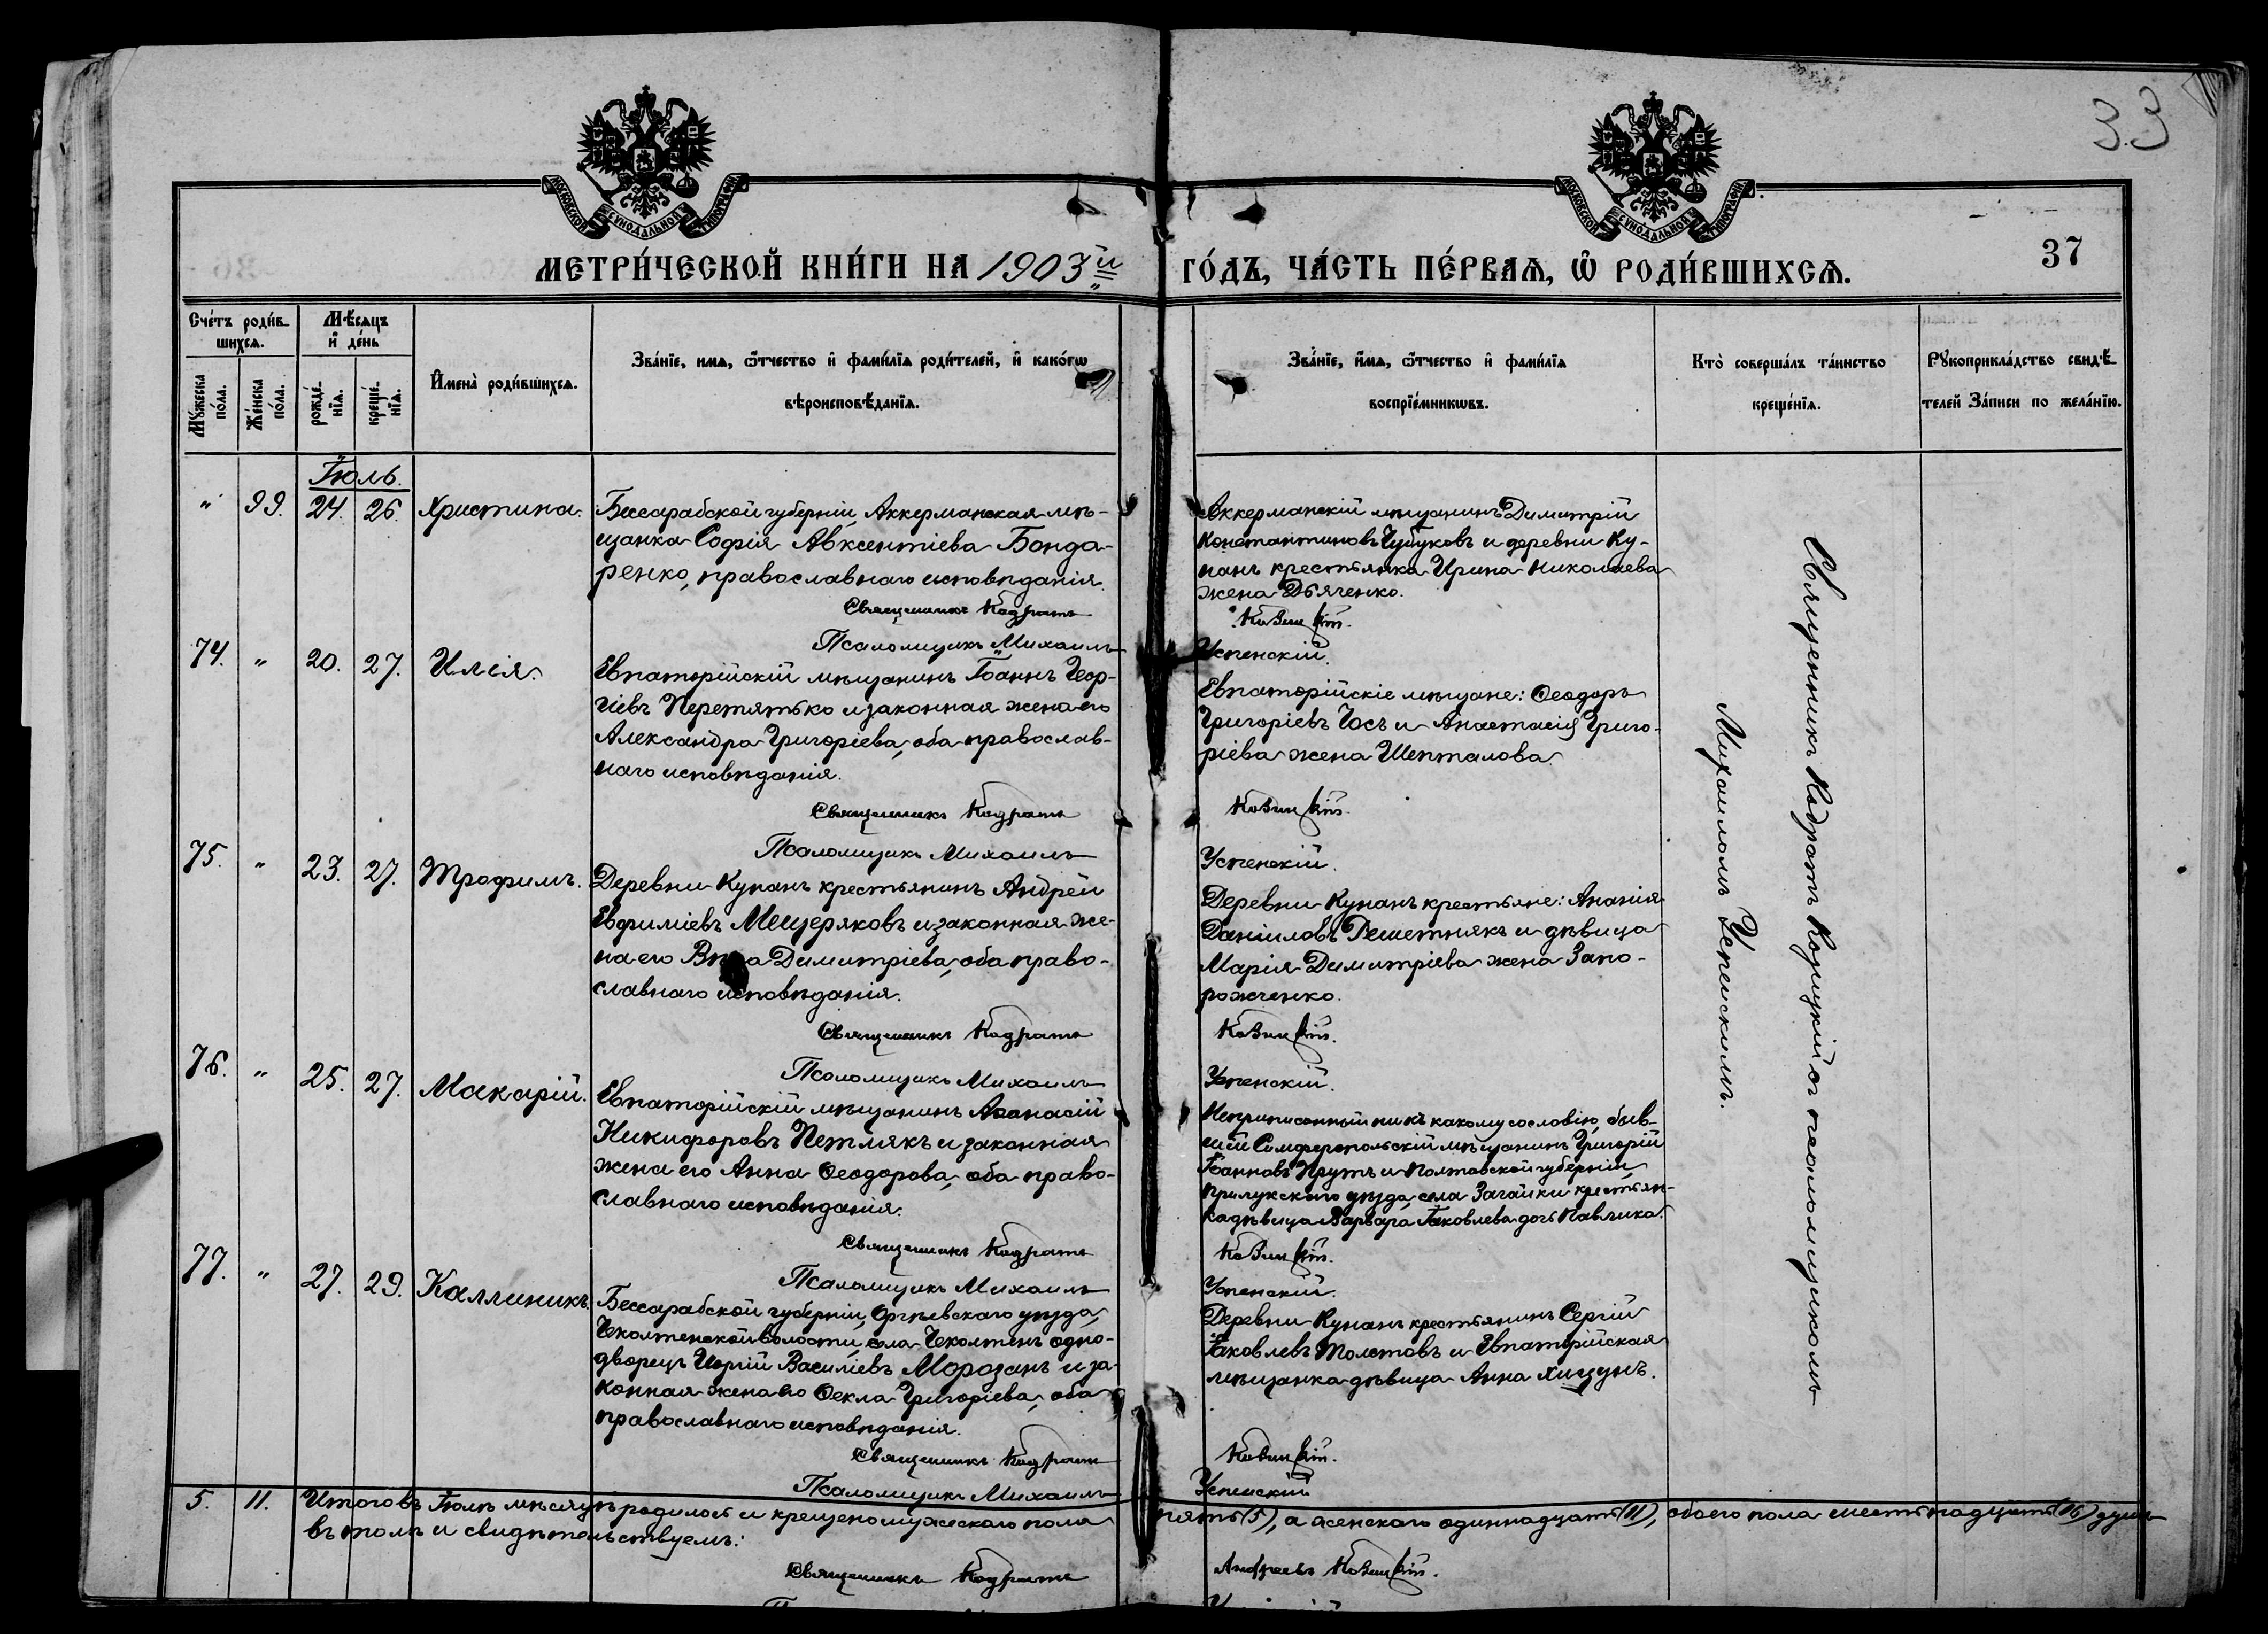 33
МОСКОВСКОЙ СѴНОДАЛЬНОЙ ТИПОГРАФІИ
МОСКОВСКОЙ СѴНОДАЛЬНОЙ ТИПОГРАФІИ
МЕТРИ́ЧЕСКОЙ КНИ́ГИ НА 1903й ГО́ДЪ, ЧА́СТЬ ПЕ́РВАѦ, Ѽ РОДИ́ВШИХСѦ.
37
Сче́тъ роди́в-
шихсѧ.
Мѣ́сѧцъ
и҆ де́нь
Мꙋ́жеска
по́ла.
Же́нска
по́ла.
рожде́-
нїѧ.
креще́-
нїѧ.
И҆мена̀ роди́вшихсѧ.
Зва́нїе, имѧ, ѻ҆́тчество и҆ фами́лїѧ роди́телей, и҆ како́гѡ
вѣроисповѣ́данїѧ.
Зва́нїе, и҆́мѧ, ѻ҆́тчество и҆ фами́лїѧ
воспрїе́мникѡвъ.
Кто̀ соверша́лъ та́инство
креще́нїѧ.
Рꙋкоприкла́дство свидѣ́-
телей За́писи по жела́нїю.
Іюль.
" 99. 24. 26. Христина.
Бессарабской губерніи, Аккерманская мѣ-
щанка Софія Авксентіева Бонда-
ренко, православнаго исповѣданія.
Священникъ Кодратъ
Псаломщикъ Михаилъ
Аккерманскій мѣщанинъ Димитрій
Константиновъ Чубуковъ и деревни Ку-
нанъ крестьянка Ирина Николаева
жена Дьяченко.
Успенскій.
74. " 20. 27. Илія.
Евпаторійскій мѣщанинъ Іоаннъ Геор-
гіевъ Перетятько и законная жена его
Александра Григоріева, оба православ-
наго исповѣданія.
Священникъ Кодратъ
Псаломщикъ Михаилъ
Евпаторійскіе мѣщане: Ѳеодоръ
Григоріевъ Чосъ и Анастасія Григо-
ріева жена Шепталова.
Успенскій.
75. " 23. 27. Трофимъ.
Деревни Кунанъ крестьянинъ Андрей
Евфиміевъ Мещеряковъ и законная же-
на его Вѣра Димитріева, оба право-
славнаго исповѣданія.
Священникъ Кодратъ
Псаломщикъ Михаилъ
Деревни Кунанъ крестьяне: Ананія
Даніиловъ Решетнякъ и дѣвица
Марія Димитріева жена Запо-
рожченко.
Успенскій.
76. " 25. 27. Макарій.
Евпаторійскій мѣщанинъ Аѳанасій
Никифоровъ Петлякъ и законная
жена его Анна Ѳеодорова, оба право-
славнаго исповѣданія.
Священникъ Кодратъ
Псаломщикъ Михаилъ
Неприписанный ни къ какому сословію, быв-
шій Симферопольскій мѣщанинъ Григорій
Іоанновъ Прутъ и Полтавской губерніи,
Прилукскаго уѣзда, села Загайки крестьян-
ка дѣвица Варвара Іаковлева дочь Павлика.
Успенскій.
77. " 27. 29. Каллиникъ.
Бессарабской губерніи, Оргѣевскаго уѣзда,
Чеколтенской волости, села Чеколтенъ одно-
дворецъ Георгій Василіевъ Морозанъ и за-
конная жена его Ѳекла Григоріева, оба
православнаго исповѣданія.
Священникъ Кодратъ
Псаломщикъ Михаилъ
Деревни Кунанъ крестьянинъ Сергій
Іаковлевъ Толстовъ и Евпаторійская
мѣщанка дѣвица Анна Хицунъ.
Успенскій
Священникъ Кодратъ съ псаломщикомъ
Михаиломъ Успенскимъ.
5. 11. Итого въ Іюлѣ мѣсяцѣ родилось и крещено мужескаго пола пять (5), а женскаго одиннадцать (11), обоего пола шестьнадцать (16) душъ
въ томъ и свидѣтельствуемъ:
Священникъ Кодратъ Андреевъ